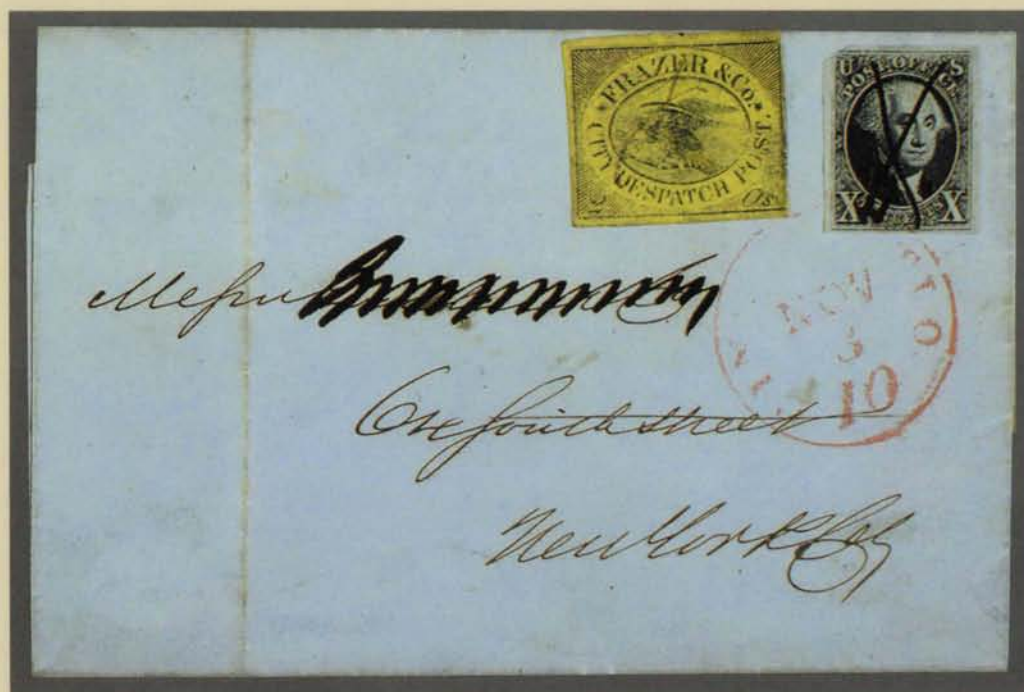 FRAZER & Co.
CITY DESPATCH POST.
U S
POST OFFICE
X X
NOV
3
10
Messrs
South Street
New York City